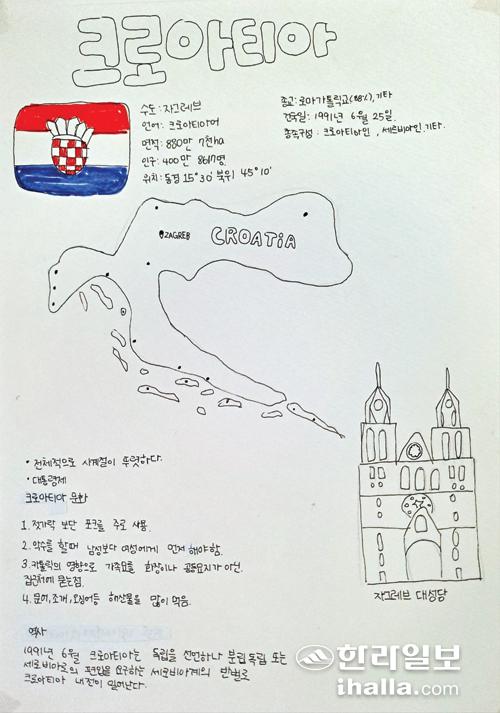 크로아티아
수도 : 자그레브
언어 : 크로아티아어
면적 : 880만 7천ha
인구 : 400만 8617명
위치 : 동경 15°30' 북위 45°10'
종교 : 로마가톨릭교(88%), 기타
건국일 : 1991년 6월 25일.
종족구성 : 크로아티아인, 세르비아인, 기타.
ZAGREB
CROATIA
• 전체적으로 사계절이 뚜렷하다.
• 대통령제
크로아티아 문화
1. 젓가락 보단 포크를 주로 사용.
2. 악수를 할때 남성보다 여성에게 먼저 해야함.
3. 카톨릭의 영향으로 가족묘를 화장이나 공동묘지가 아닌,
집근처에 묻는점.
4. 문어, 조개, 오징어등 해산물을 많이 먹음.
자그레브 대성당
역사
1991년 6월 크로아티아는 독립을 선언하나 분립독립 또는
세르비아로의 편입을 요구하는 세르비아계의 반발로
크로아티아 내전이 일어난다.
한라일보
ihalla.com